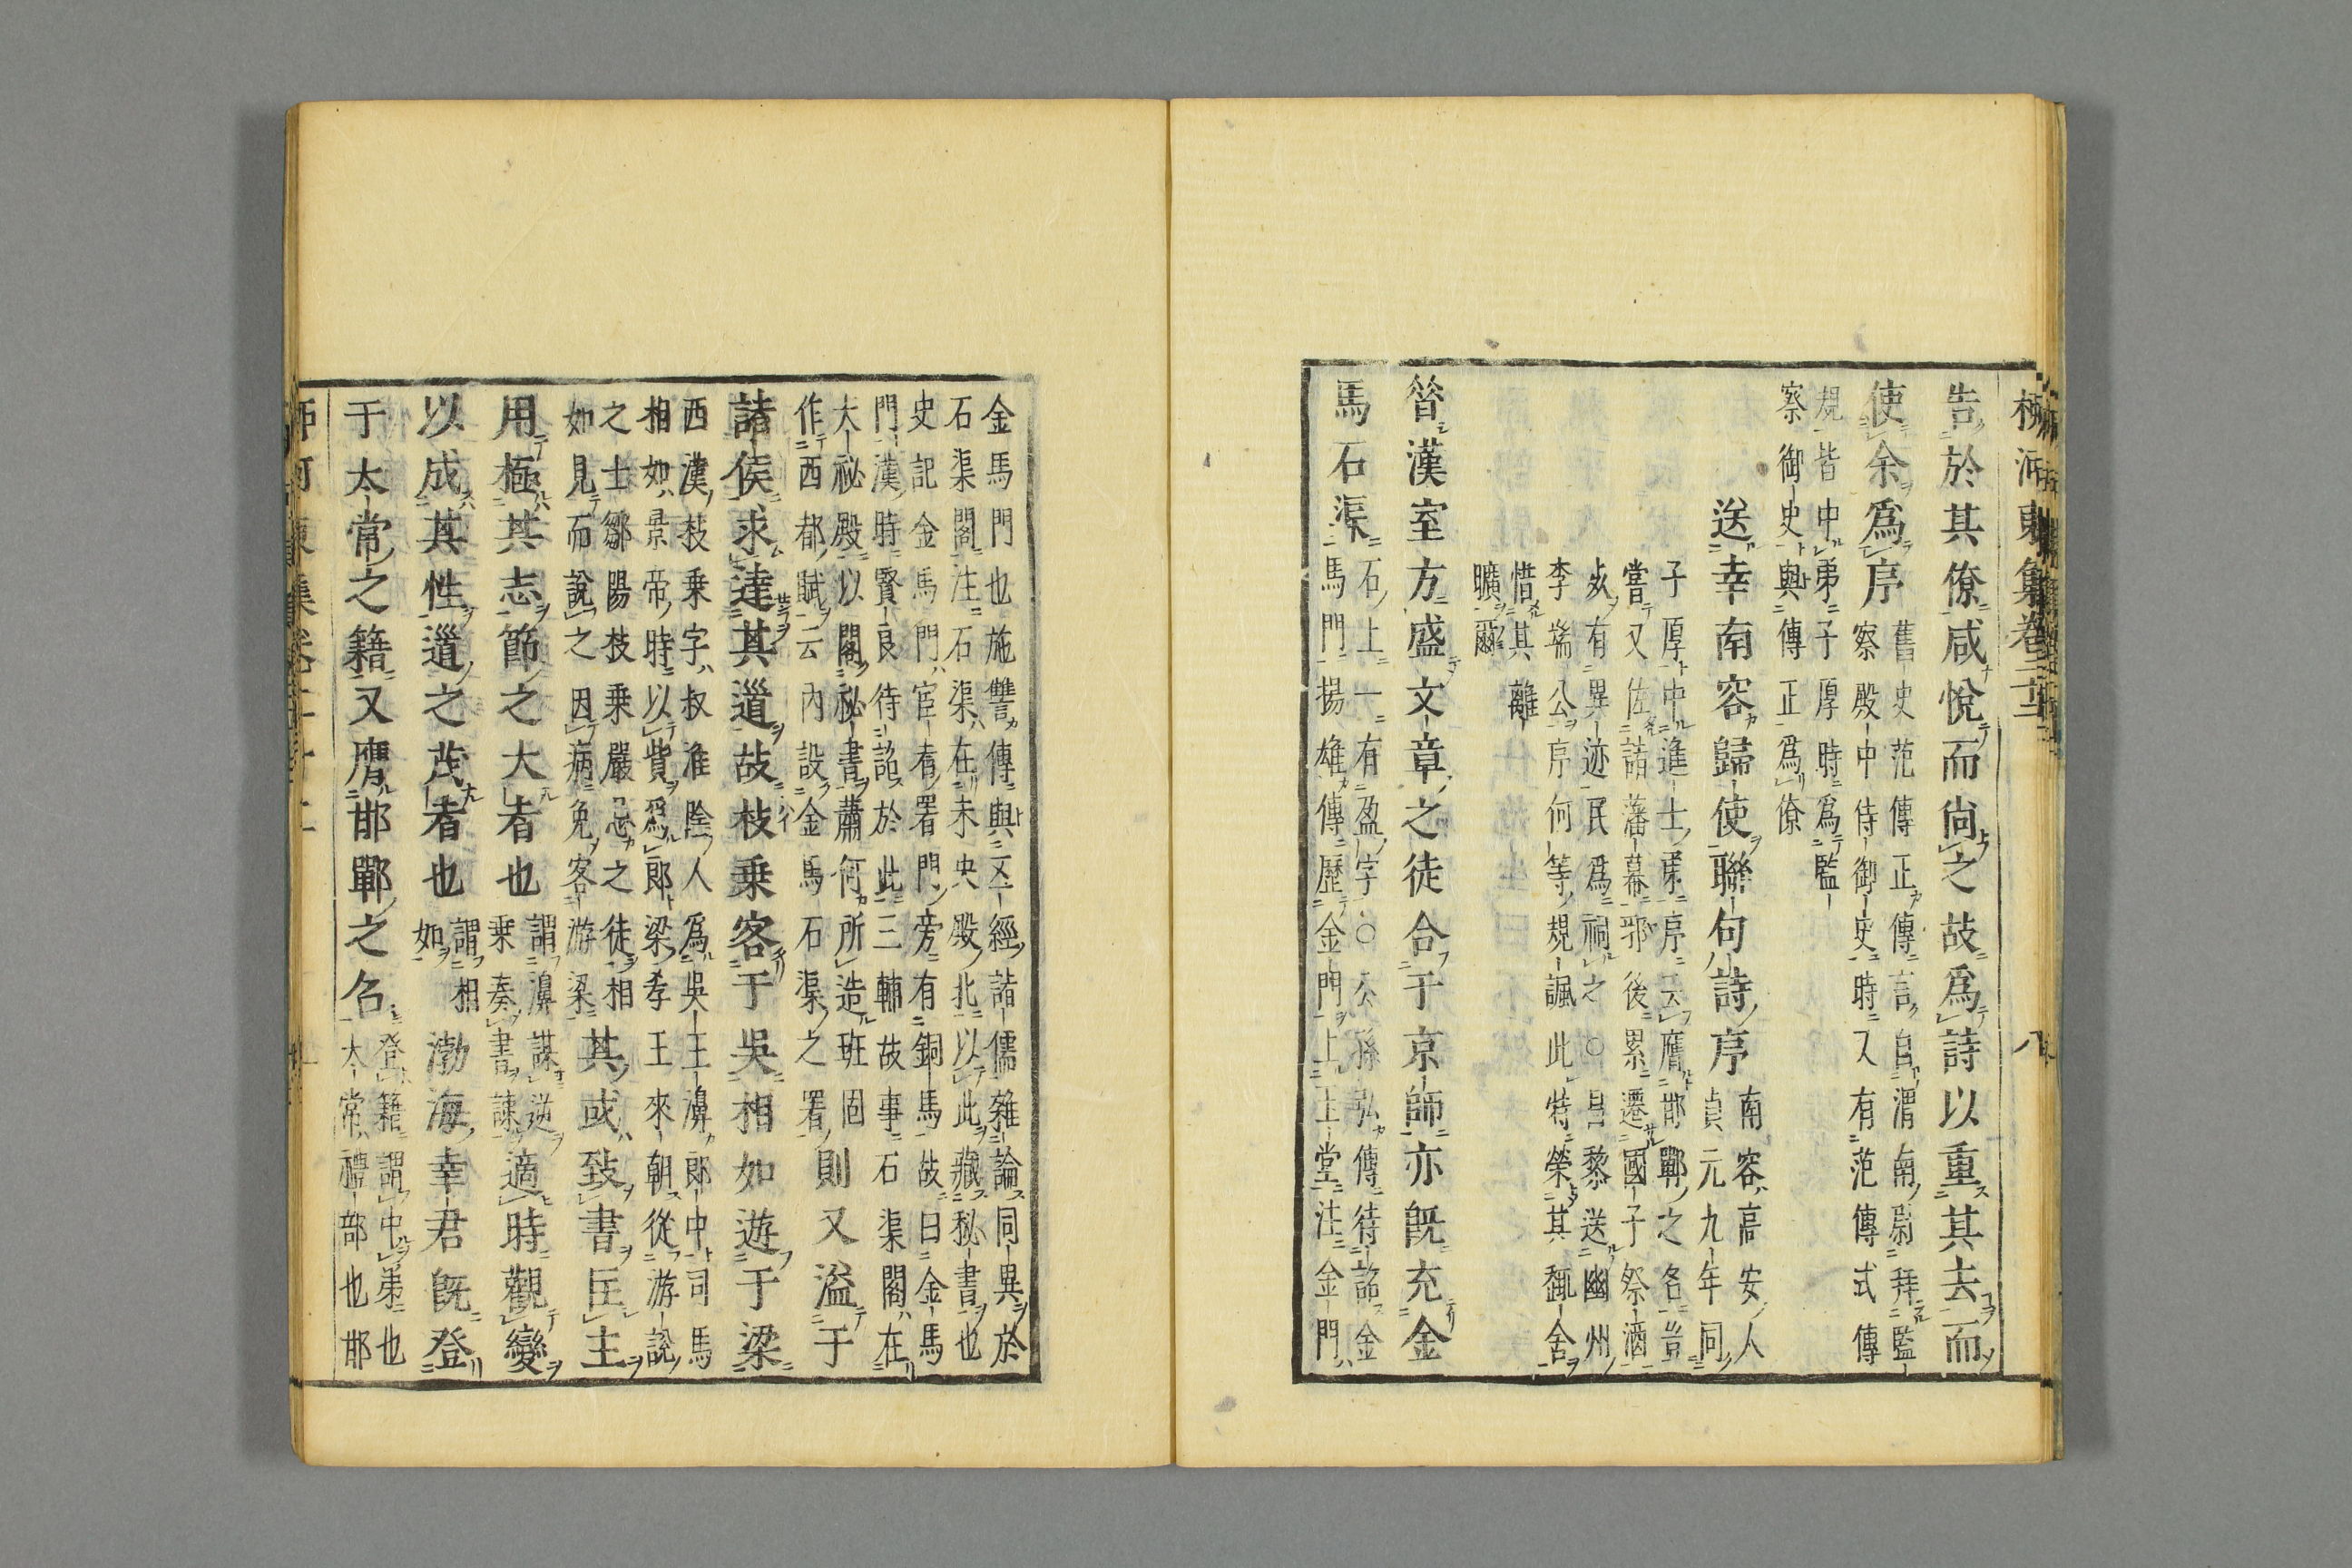 柳河東集卷二十二 八
告於其僚咸悅而尙之故爲詩以重其去而
使余爲序
舊史范傳正傳言自渭南尉拜監
察殿中侍御史時又有范傳式傳
規皆中弟子厚時爲監
察御史與傳正爲僚
送幸南容歸使聯句詩序
南容高安人
貞元九年同
子厚中進士第序云膺邯鄲之名豈
嘗又佐諸藩幕耶後累遷國子祭酒
歿有異迹民爲祠之○昌黎送幽州
李端公序何等規諷此特榮其甒舍
惜其離
曠爾
昝漢室方盛文章之徒合于京師亦旣充金
馬石渠
石上一有盈字○公孫弘傳待詔金
馬門揚雄傳歷金門上玉堂注金門
金馬門也施讐傳與五經諸儒雜論同異於
石渠閣注石渠在未央殿北以此藏秘書也
史記金馬門宦者署門旁有銅馬故曰金馬
門漢時賢良待詔於此三輔故事石渠閣在
大祕殿以閣祕書蕭何所造班固
作西都賦云內設金馬石渠之署
則又溢于
諸侯求達其道故枚乗客于吳相如遊于梁
西漢枚乗字叔淮陰人爲吳王濞郎中司馬
相如景帝時以貲爲郎梁孝王來朝從游說
之士鄒陽枚乗嚴忌之徒相
如見而說之因病免客游梁
其或致書匡主
用極其志節之大者也
謂濞謀逆
乗奏書諫
適時觀變
以成其性道之茂者也
謂相
如
渤海幸君旣登
于太常之籍又膺邯鄲之名
登籍謂中弟也
太常禮部也邯